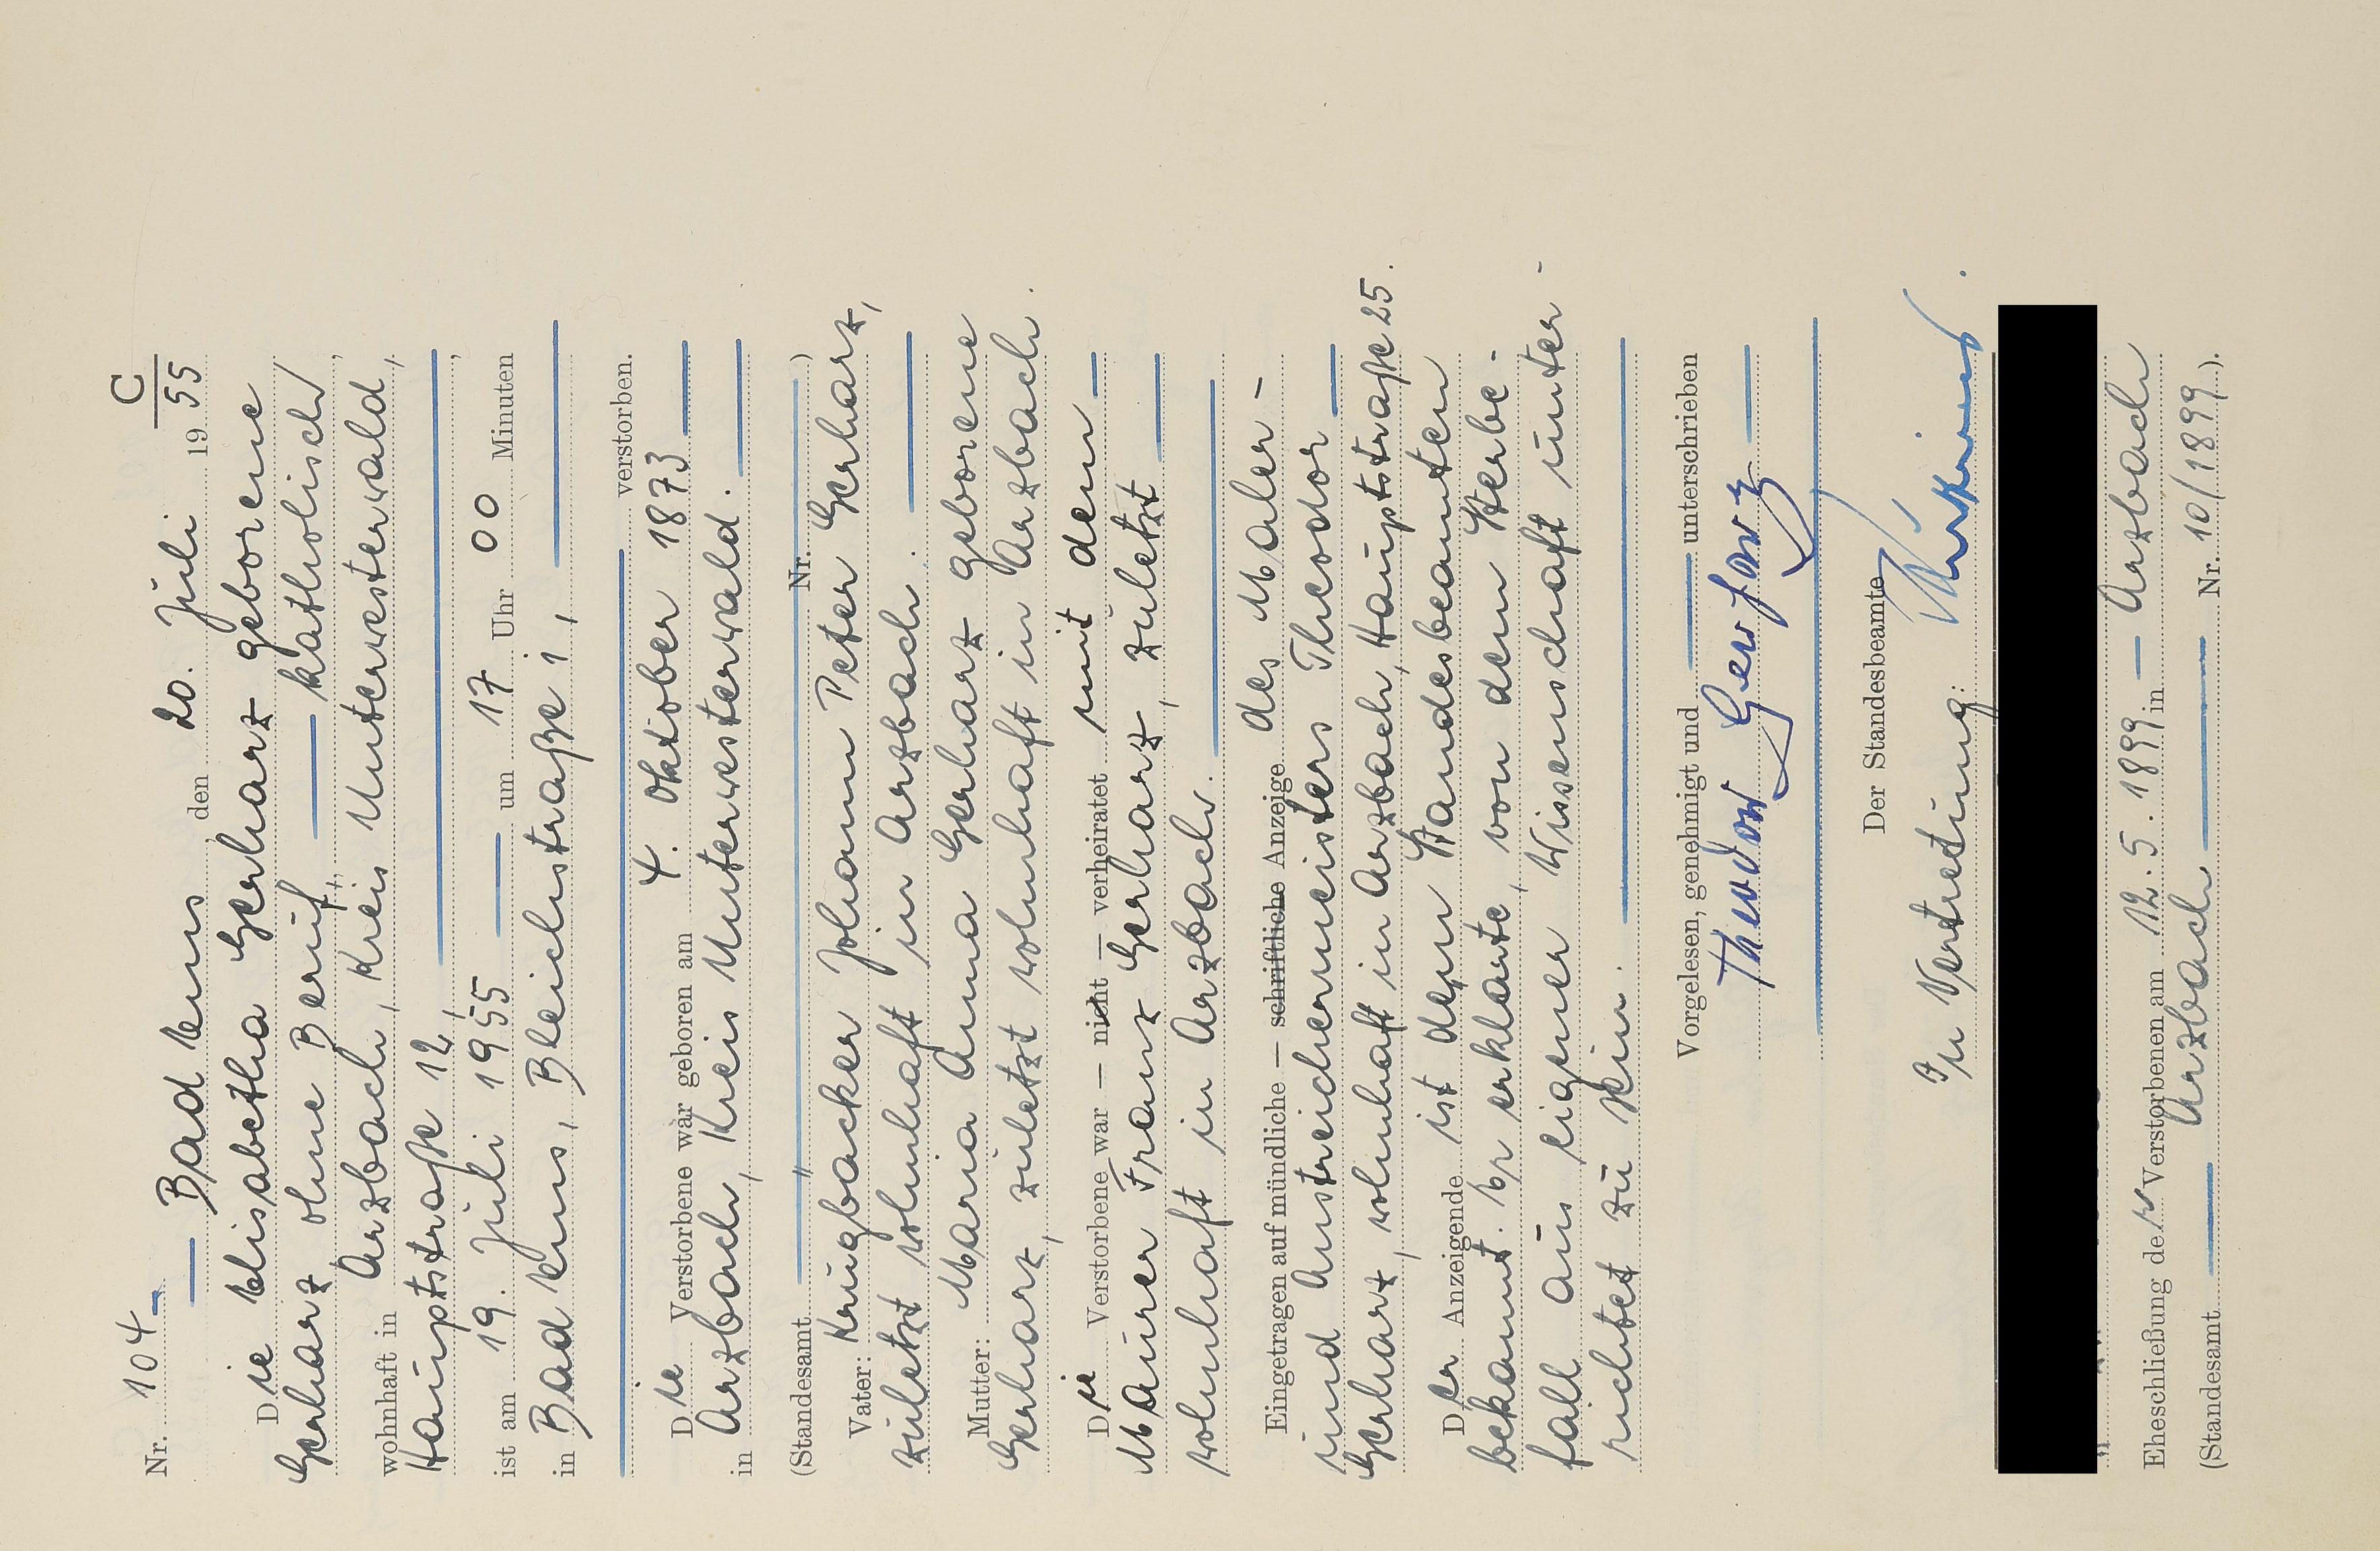 C
Nr. 104
Bad Ems, den 20. Juli 1955
Die Elisabetha Gerharz geborene
Gerharz, ohne Beruf, — katholisch,
wohnhaft in Arzbach, Kreis Unterwesterwald,
Hauptstraße 12,
ist am 19. Juli 1955 um 17 Uhr 00 Minuten
in Bad Ems, Bleichstraße 1,
verstorben.
Die Verstorbene war geboren am 4. Oktober 1873
in Arzbach, Kreis Unterwesterwald.
(Standesamt " Nr. )
Vater: Krugbäcker Johann Peter Gerharz,
zuletzt wohnhaft in Arzbach.
Mutter: Maria Anna Gerharz geborene
Gerharz, zuletzt wohnhaft in Arzbach.
Die Verstorbene war — nicht — verheiratet mit dem
Maurer Franz Gerharz, zuletzt
wohnhaft in Arzbach.
Eingetragen auf mündliche — schriftliche Anzeige des Maler-
und Anstreichermeisters Theodor
Gerharz, wohnhaft in Arzbach, Hauptstraße 25.
Der Anzeigende ist dem Standesbeamten
bekannt. Er erklärte, von dem Sterbe-
fall aus eigener Wissenschaft unter-
richtet zu sein.
Vorgelesen, genehmigt und unterschrieben
Theodor Gerharz
Der Standesbeamte
In Vertretung:
Eheschließung der Verstorbenen am 12.5.1899 in — Arzbach
(Standesamt Arzbach Nr. 10/1899).